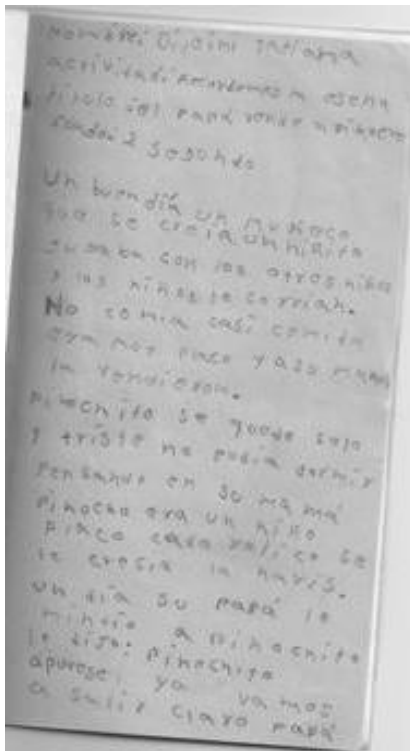 nombre: Dijeini
actividad: recordemos a
titulo: el papá vende a pinocho
segundo
Un buen día un muñeco
que se creia un niñito
jugaba con los otros niños
y los niños le corrian.
No comia casi comida
era muy flaco y a su mamá
la vendieron.
pinochito se quedo solo
y triste no podia dormir
pensando en su mamá
pinocho era un niño
flaco cada vez se
le crecia la naris.
un día su papá le
mintio a pinochito
le dijo: pinochito
apurese ya vamos
a salir claro papá